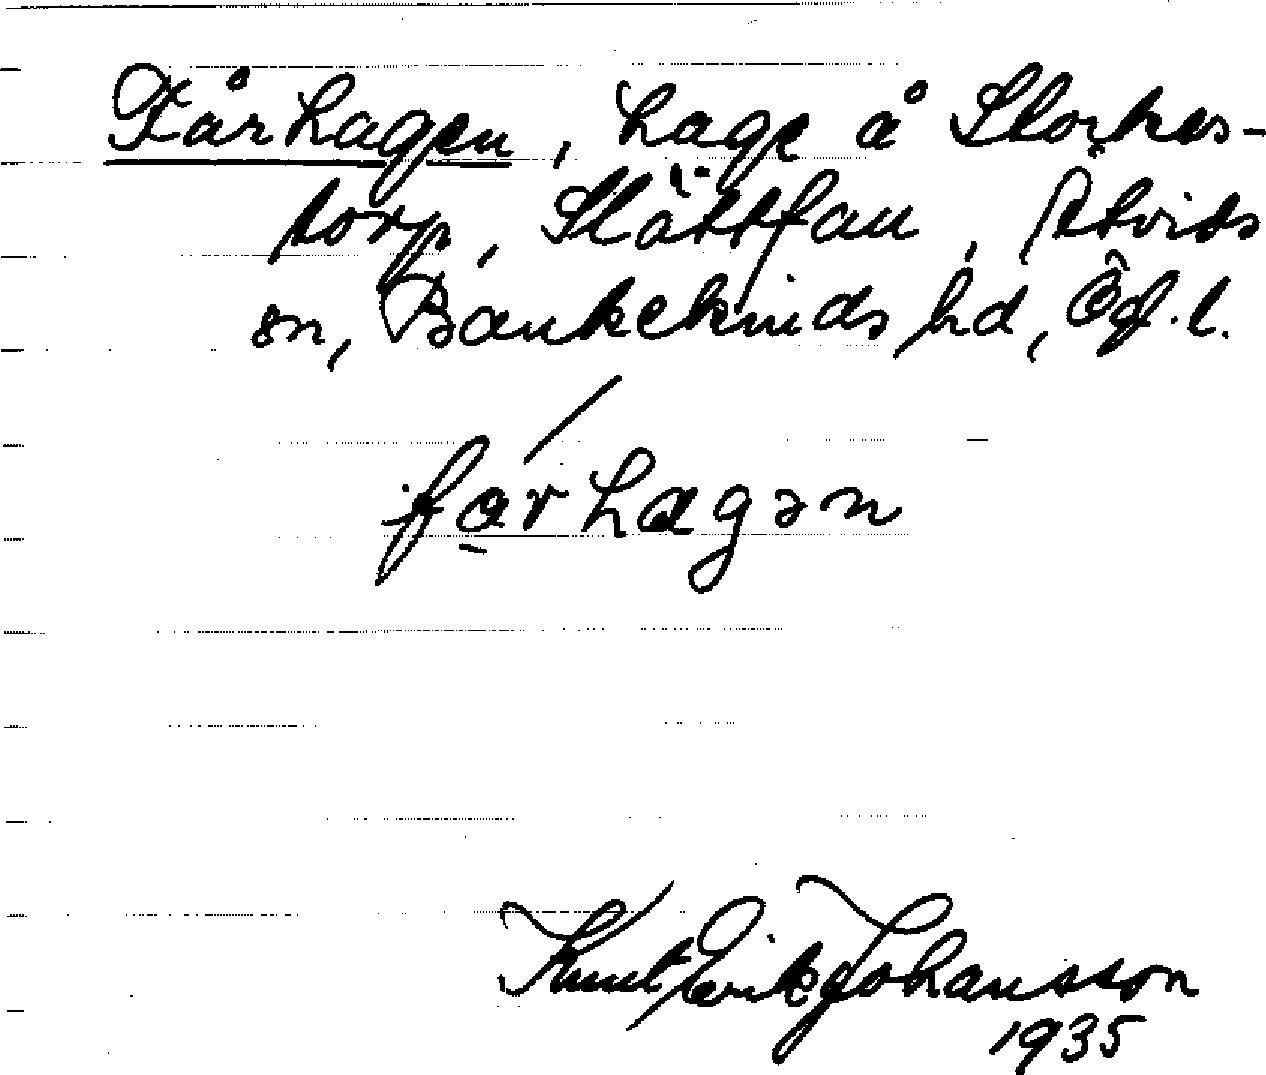 Fårhagen, hage å Storkes-
torp, Slättfall, Åtvids
sn, Bankekinds hd, Ögl. l.
farhagən
Knut Erik Johansson
1935